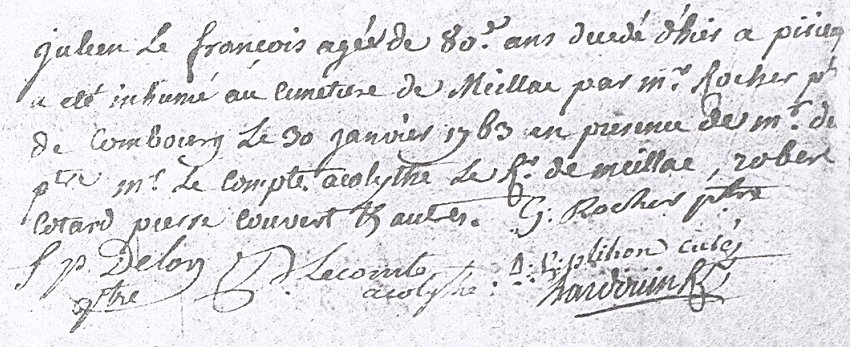 julien Le françois agée de 80.e ans decedé d'hier a
a eté inhumé au cimetiere de Meillac par mr. Rocher ptr
de Combourg Le 30 janvier 1763 en presence de mr. de
ptre mr. Le Compte acolythe Le Rr. de meillac, robert
Cotard pierre Couvert & autres. G. Rocher ptre
J p. Delon P. Lecomte curé
ptre acolythe :